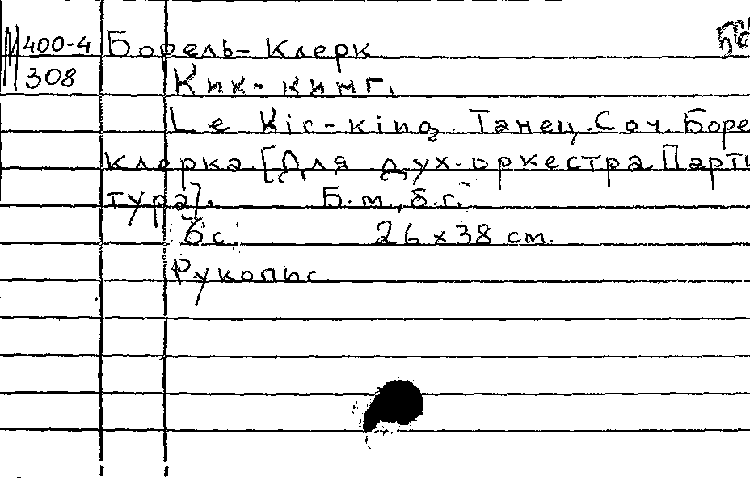 М 400-4 Борель-Клерк
308 Кик-кинг.
Le Kic-king. Танец. Соч. Боре
клерка [Для дух. оркестра. Парти
тура]. Б.м., б.г.
6 с. 26 x 38 см.
Рукопис